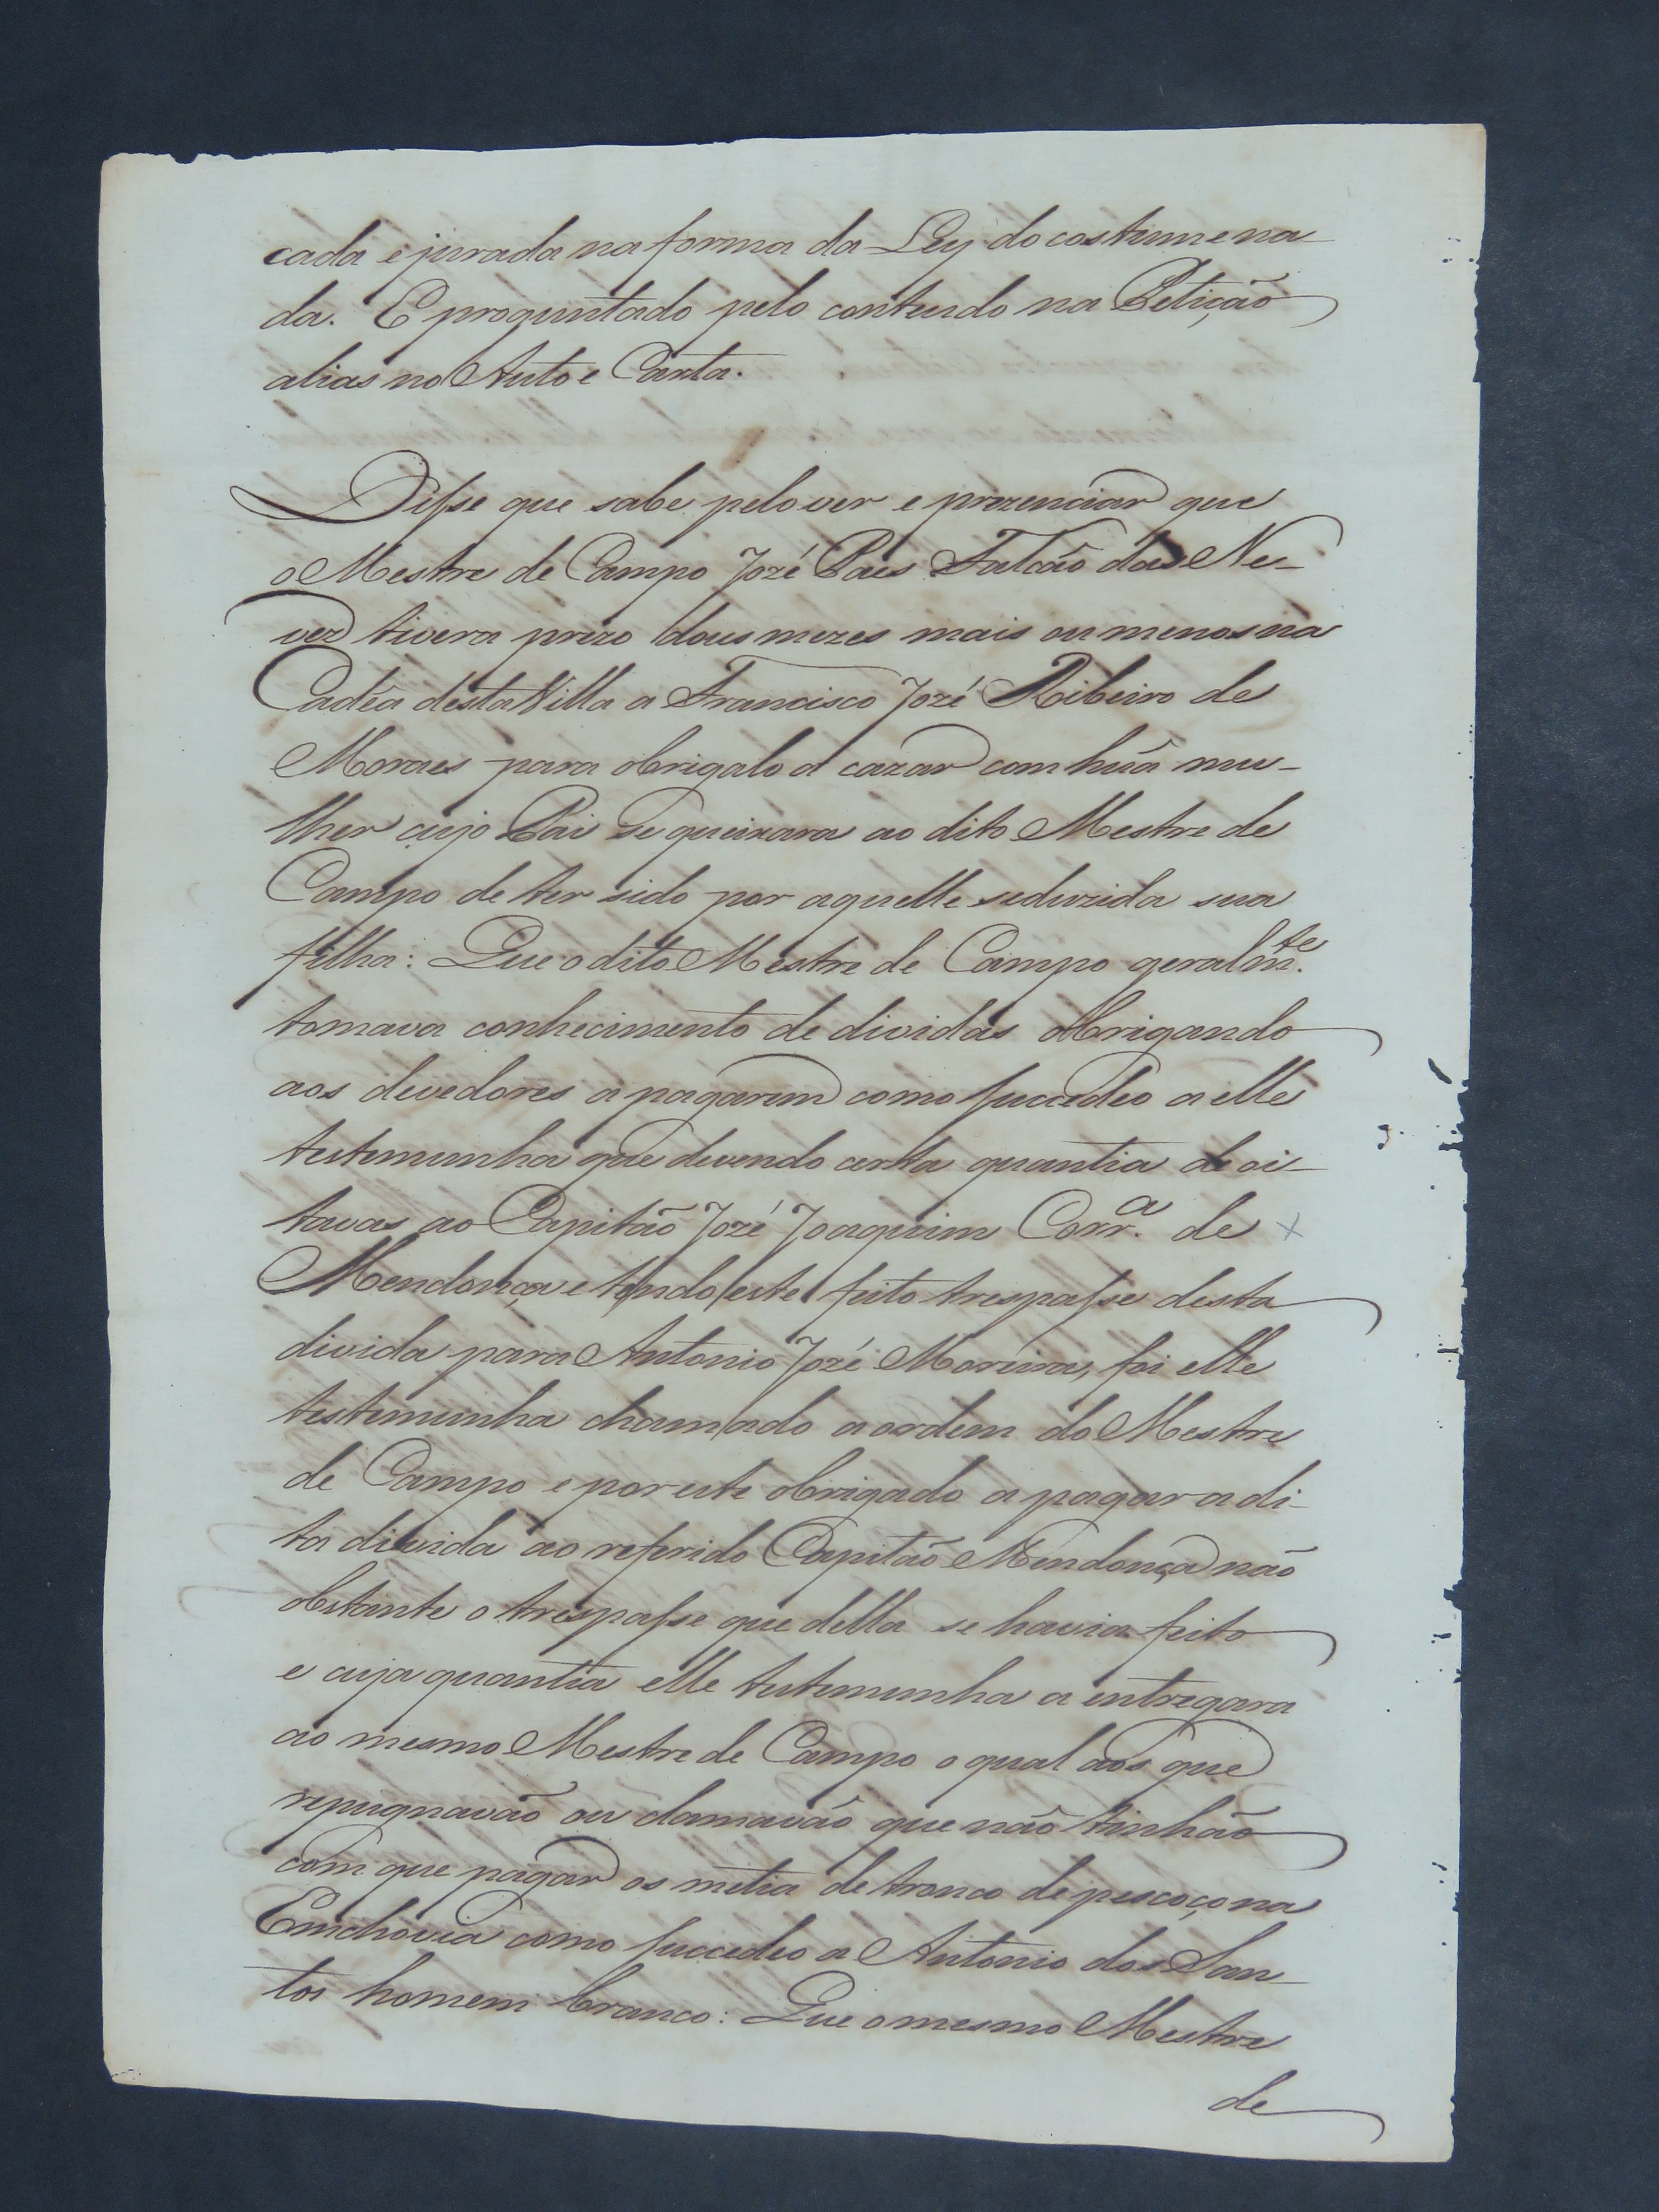 cada e jurada na forma da Ley do costume na
da. E proguntado pelo contendo na Petição
alias no Auto e Carta.
Disse que sabe pelo ver e prezenciar que
o Mestre de Campo Jozé Paes Falcão das Ne-
ves tivera prezo dous mezes mais ou menos na
Cadêa desta Villa a Francisco Jozé Ribeiro de
Moraes para obrigalo a cazar com huã mu-
lher cujo Pai se queixara ao dito Mestre de
Campo de ter sido por aquelle seduzida sua
filha: Que o dito Mestre de Campo geralm.te
tomava conhecimento de dividas obrigando
aos devedores a pagarem como succedeo a elle
testemunha que devendo certa quantia de oi-
tavas ao Capitão Jozé Joaquim Corr.a de x
Mendonça e tendo este feito trespasse desta
divida para Antonio Jozé Moreira, foi elle
testemunha chamado a ordem do Mestre
de Campo e por este obrigado a pagar a di-
ta divida ao referido Capitão Mendonça não
obstante o trespasse que della se havia feito
e cuja quantia elle testemunha a entregara
ao mesmo Mestre de Campo o qual aos que
repugnavão ou clamavão que não tinhão
com que pagar os metia de tronco de pescoço na
Emchovia como succedeo a Antonio dos San-
tos homem branco: Que o mesmo Mestre
de